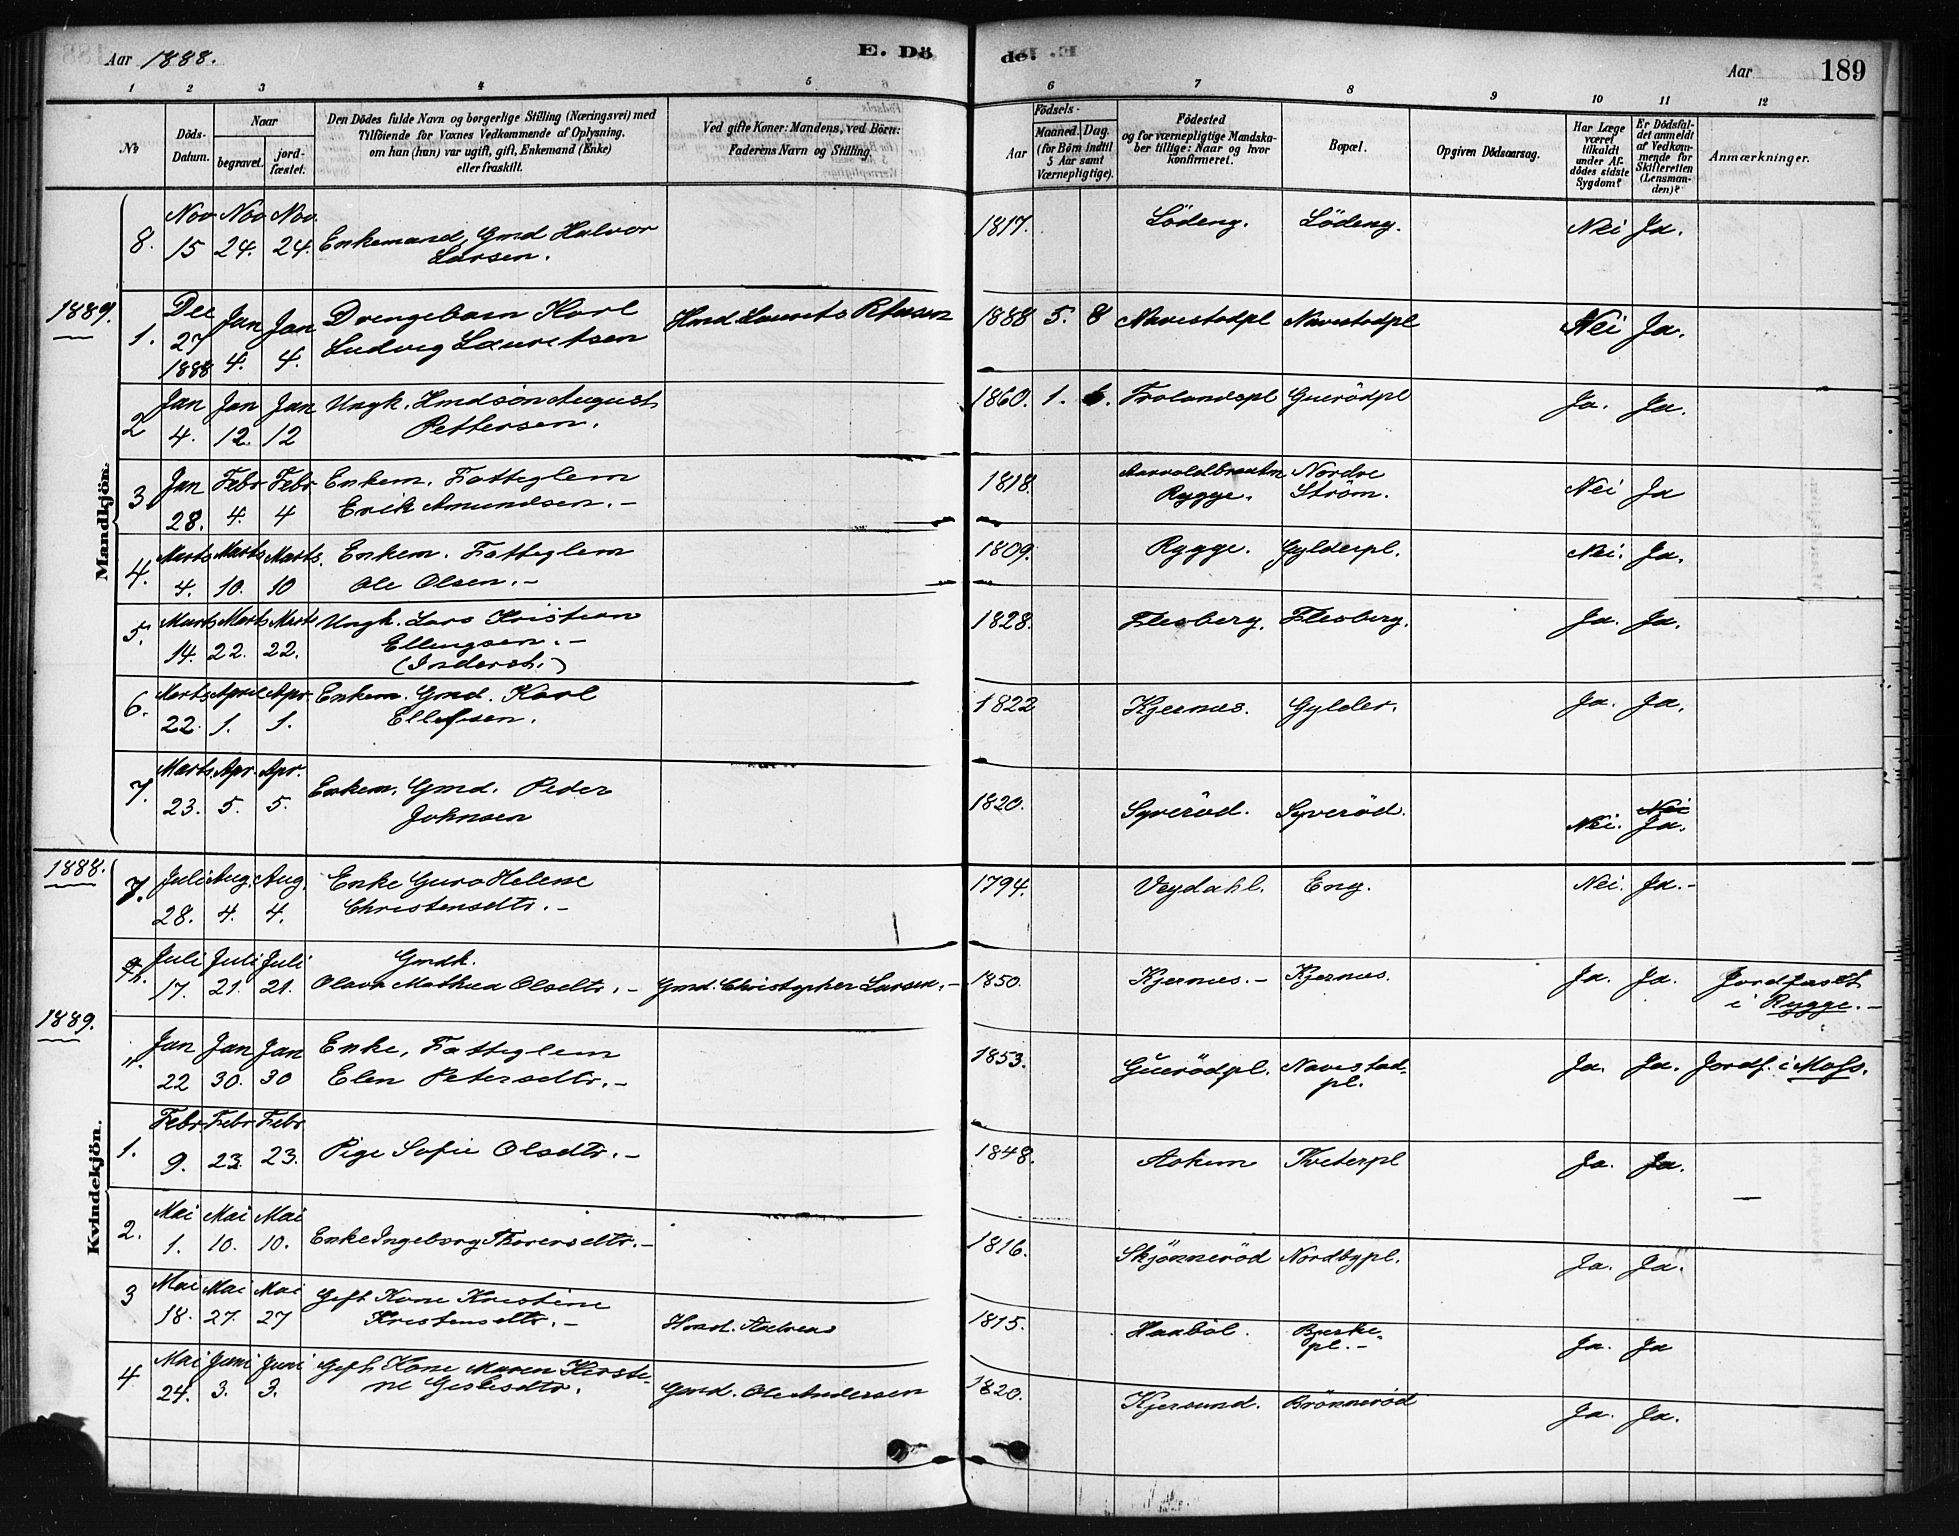 Aar 1888. E. Dö
de. Aar 189
1 2 3 4 5 6 7 8 9 10 11 12
No
Döds-Datum.
Naar
begravet. jordfæstet.
Den Dödes fulde Navn og borgerlige Stilling (Næringsvei) med
Tilföiende for Voxnes Vedkommende af Oplysning,
om han (hun) var ugift, gift, Enkemand (Enke)
eller fraskilt.
Ved gifte Koner: Mandens, ved Börn:
Faderens Navn og Stilling.
Födsels-
Aar Maaned. Dag.
(for Börn indtil
5 Aar samt
Værnepligtige).
Födested
og for værnepligtige Mandska-
ber tillige: Naar og hvor
konfirmeret.
Bopæl.
Opgiven Dödsaarsag.
Har Læge
været
tilkaldt
under Af-
dödes sidste
Sygdom?
Er Dödsfal-
det anmeldt
af Vedkom-
mende for
Skifteretten
(Lensman-
den)?
Anmærkninger.
Mandkjön.
8. Nov 15 Nov 24. Nov. 24. Enkemand, Gmd Halvor Larsen. 1817. Södeng. Södeng. Nei Ja.
1889.
1. Dec 27 1888 Jan 4. Jan 4. Drengebarn Karl Ludvig Lauritsen Hmd Laurits 1888 5. 8 Navestadpl Navestadpl Nei Ja.
2 Jan 4. Jan 12. Jan 12 Ungk. Hmdsön August Pettersen. 1860. 1. 6. Trolandspl Guerödpl Ja. Ja.
3 Jan 28. Febr 4. Febr 4 Enkem. Fattiglem Erik Amundsen. - 1818. Rygge. Nordre Ström. Nei Ja
4. Marts 4. Marts 10. Marts. 10 Enkem. Fattiglem Ole Olsen. - 1809. Rygge. Gylderpl. Nei. Ja.
5. Marts 14. Marts 22. Marts 22. Ungk. Lars Kristian Ellingsen. - (Inderst.) 1828. Flesberg. Flesberg. Ja. Ja.
6. Marts 22. April 1. Apr 1. Enkem. Gmd. Karl Ellefsen. 1822 Kjernæs. Gylder. Ja. Ja.
7. Marts 23. Apr. 5. Apr. 5. Enkem. Gmd. Peder Johnsen 1820. Syveröd. Syveröd. Nei. Nei Ja.
Kvindekjön.
1888.
7. Juli 28. Aug. 4. Aug. 4. Enke Guro Helene Christensdtr. - 1794. Veydahl. Eng. Nei. Ja. -
Juli 17. Juli 21. Juli 21. Gmdk. Olava Mathea Olsdtr. - Gmd. Christopher Larsen. - 1850. Kjernæs. - Kjernæs. Ja. Ja. Jordfæstet i Rygge. -
1889.
" Jan 22 Jan 30. Jan 30 Enke, Fattiglem Elen Petersdtr. - 1853. Guerödpl. Navestad-pl. Ja. Ja. Jordf. i Moss.
1. Febr 9. Febr 23. Febr 23. Pige Sofie Olsdtr. - 1848. Askem Kveterpl Ja. Ja.
2. Mai 1. Mai 10. Mai 10. Enke Ingeborg Thorersdtr. - 1816. Skjönneröd Nordbypl. Ja. Ja.
3 Mai 18. Mai 27. Mai 27 Gift Kone Kristine Kristensdtr. - Hmd. Andreas 1815. Haaböl. pl. - Ja. Ja
4 Mai 24. Juni 3. Juni 3. Gift Kone Maren Kirstine Gmd. Ole Andersen 1820. Kjersund. Brönneröd Ja. Ja.